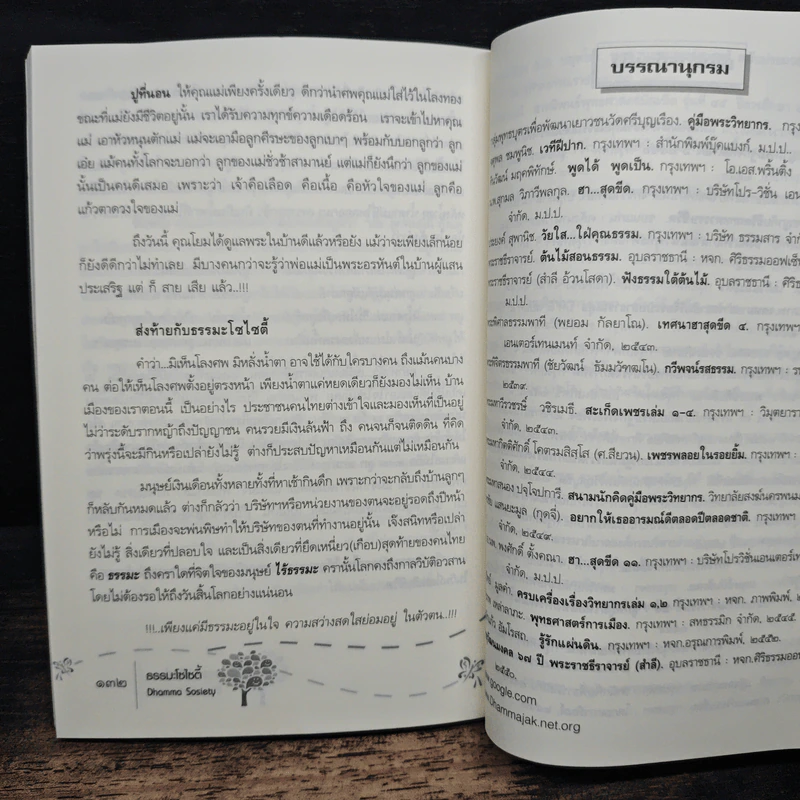 ปูที่นอน ให้คุณแม่เพียงครั้งเดียว ดีกว่านำศพคุณแม่ใส่ไว้ในโลงทอง
ขณะที่แม่ยังมีชีวิตอยู่นั้น เราได้รับความทุกข์ความเดือดร้อน เราจะเข้าไปหาคุณ
แม่ เอาหัวหนุนตักแม่ แม่จะเอามือลูกศีรษะของลูกเบาๆ พร้อมกับบอกลูกว่า ลูก
เอ๋ย แม้คนทั้งโลกจะบอกว่า ลูกของแม่ชั่วช้าสามานย์ แต่แม่ก็ยังนึกว่า ลูกของแม่
นั้นเป็นคนดีเสมอ เพราะว่า เจ้าคือเลือด คือเนื้อ คือหัวใจของแม่ ลูกคือ
แก้วตาดวงใจของแม่
ถึงวันนี้ คุณโยมได้ดูแลพระในบ้านดีแล้วหรือยัง แม้ว่าจะเพียงเล็กน้อย
ก็ยังดีดีกว่าไม่ทำเลย มีบางคนกว่าจะรู้ว่าพ่อแม่เป็นพระอรหันต์ในบ้านผู้แสน
ประเสริฐ แต่ ก็ สาย เสีย แล้ว..!!!
ส่งท้ายกับธรรมะโซไซตี้
คำว่า...มิเห็นโลงศพ มิหลั่งน้ำตา อาจใช้ได้กับใครบางคน ถึงแม้นคนบาง
คน ต่อให้เห็นโลงศพตั้งอยู่ตรงหน้า เพียงน้ำตาแค่หยดเดียวก็ยังมองไม่เห็น บ้าน
เมืองของเราตอนนี้ เป็นอย่างไร ประชาชนคนไทยต่างเข้าใจและมองเห็นที่เป็นอยู่
ไม่ว่าระดับรากหญ้าถึงปัญญาชน คนรวยมีเงินล้นฟ้า ถึง คนจนก็จนติดดิน ที่คิด
ว่าพรุ่งนี้จะมีกินหรือเปล่ายังไม่รู้ ต่างก็ประสบปัญหาเหมือนกันแต่ไม่เหมือนกัน
มนุษย์เงินเดือนทั้งหลายทั้งที่หาเช้ากินดึก เพราะกว่าจะกลับถึงบ้านลูกๆ
ก็หลับกันหมดแล้ว ต่างก็กลัวว่า บริษัทฯหรือหน่วยงานของตนจะอยู่รอดถึงปีหน้า
หรือไม่ การเมืองจะพ่นพิษทำให้บริษัทของตนที่ทำงานอยู่นั้น เจ๊งสนิทหรือเปล่า
ยังไม่รู้ สิ่งเดียวที่ปลอบใจ และเป็นสิ่งเดียวที่ยึดเหนี่ยว(เกือบ)สุดท้ายของคนไทย
คือ ธรรมะ ถึงคราใดที่จิตใจของมนุษย์ ไร้ธรรมะ ครานั้นโลกคงถึงกาลวิบัติอวสาน
โดยไม่ต้องรอให้ถึงวันสิ้นโลกอย่างแน่นอน
!!!..เพียงแค่มีธรรมะอยู่ในใจ ความสว่างสดใสย่อมอยู่ ในตัวตน..!!!
๑๓๒
ธรรมะโซไซตี้
Dhamma Sosiety
บรรณานุกรม
กลุ่มพุทธบุตรเพื่อพัฒนาเยาวชนวัดศรีบุญเรือง. คู่มือพระวิทยากร.
ชมพูนิช. เวทีฝีปาก. กรุงเทพฯ : สำนักพิมพ์บุ๊คแบงก์, ม.ป.ป.
มฤคพิทักษ์. พูดได้ พูดเป็น. กรุงเทพฯ : โอ.เอส.พริ้นติ้ง
วิภาวีพลกุล. ฮา...สุดขีด. กรุงเทพฯ : บริษัทโปร-วิชั่น
จำกัด, ม.ป.ป.
สุพานิช. วัยใส...ใฝ่คุณธรรม. กรุงเทพฯ : บริษัท ธรรมสาร
พระราชธีราจารย์. ต้นไม้สอนธรรม. อุบลราชธานี : หจก. ศิริธรรมออฟเซ็ท
พระราชธีราจารย์ (สำลี อ้วนโสดา). ฟังธรรมใต้ต้นไม้. อุบลราชธานี :
ม.ป.ป.
พระพิศาลธรรมพาที (พยอม กัลยาโณ). เทศนาฮาสุดขีด ๔. กรุงเทพฯ
เอนเตอร์เทนเมนท์ จำกัด, ๒๕๔๓.
(ชัยวัฒน์ ธัมมวัฑฒโน). กวีพจน์รสธรรม. กรุงเทพฯ :
๒๕๓๙.
วชิรเมธี. สะเก็ดเพชรเล่ม ๑-๔. กรุงเทพฯ :
๒๕๔๓.
โคตรมสิสฺโส (ศ.สียวน). เพชรพลอยในรอยยิ้ม.
จำกัด, ๒๕๔๔.
ปจฺโจปการี. สนามนักคิดคู่มือพระวิทยากร. วิทยาลัยสงฆ์นครพนม
แสนยะมูล (กุดจี่). อยากให้เธออารมณ์ดีตลอดปีตลอดชาติ. กรุงเทพฯ
จำกัด, ๒๕๔๙.
พงศ์ศักดิ์ ตั้งคณา. ฮา...สุดขีด ๑๑. กรุงเทพฯ : บริษัทโปรวิชั่นเอนเตอร์
จำกัด, ม.ป.ป.
มูลคำ. ครบเครื่องเรื่องวิทยากรเล่ม ๑,๒ กรุงเทพฯ : หจก. ภาพพิมพ์,
เหล่าลาภะ. พุทธศาสตร์การเมือง. กรุงเทพฯ : สหธรรมิก จำกัด, ๒๕๔๕.
อัมโรสถ. รู้รักแผ่นดิน. กรุงเทพฯ : หจก.อรุณการพิมพ์, ๒๕๕๒.
๖๗ ปี พระราชธีราจารย์ (สำลี). อุบลราชธานี : หจก.ศิริธรรมออฟ
๒๕๕๐.
google.com
Dhammajak.net.org